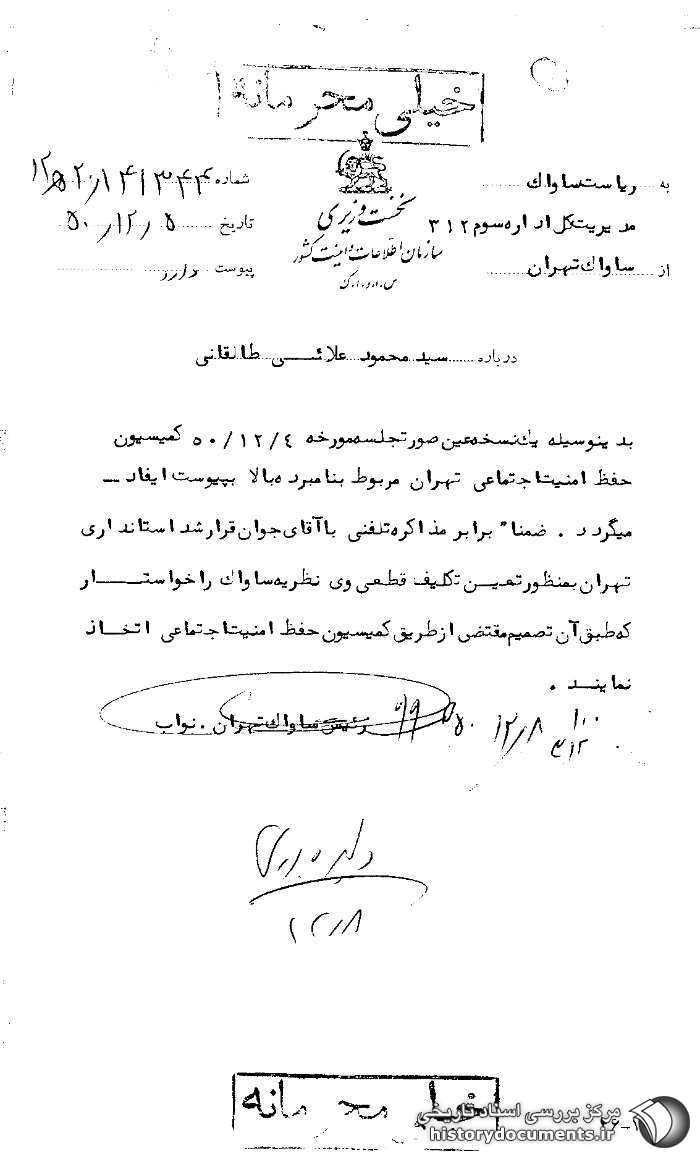 خیلی محرمانه
به ریاست ساواک
مدیریت کل اداره سوم ۳۱۲
از ساواک تهران
نخست وزیری
سازمان اطلاعات و امنیت کشور
س.ا.و.ا.ک
شماره
تاریخ ۵۰/۱۲/۵
پیوست دارد
درباره سید محمود علائی طالقانی
بدینوسیله یک نسخه عین صورتجلسه مورخه ۵۰/۱۲/۴ کمیسیون
حفظ امنیت اجتماعی تهران مربوط بنامبرده بالا بپیوست ایفاد
میگردد . ضمنا" برابر مذاکره تلفنی با آقای جوان قرار شد استانداری
تهران بمنظور تعیین تکلیف قطعی وی نظریه ساواک را خواستار
که طبق آن تصمیم مقتضی از طریق کمیسیون حفظ امنیت اجتماعی اتخاذ
نمایند .
رئیس ساواک تهران . نواب
۵۰/۱۲/۸
۳۱۲
۱۲/۸
خیلی محرمانه
مرکز بررسی اسناد تاریخی
historydocuments.ir